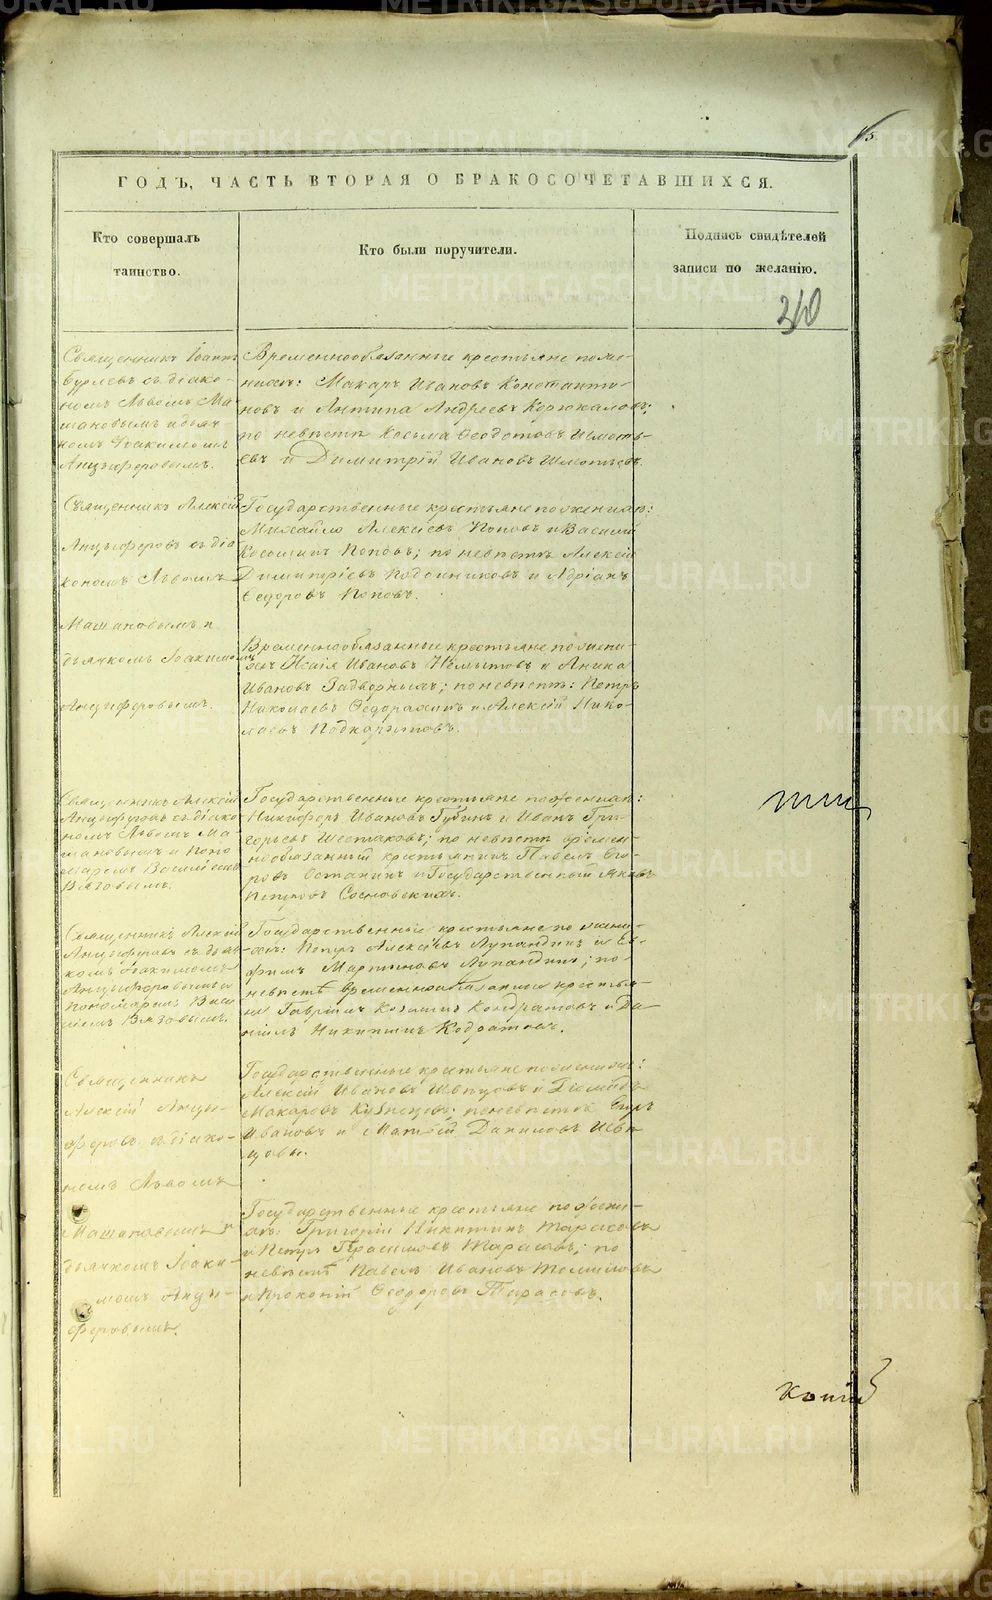 ГОДЪ, ЧАСТЬ ВТОРАЯ О БРАКОСОЧЕТАВШИХСЯ.
Кто совершалъ
таинство.
Кто были поручители.
Подпись свидѣтелей
записи по желанію.
310
Священникъ Іоаннъ
съ діако-
номъ Львомъ Ма-
шановымъ и дьяч-
комъ Іоакимомъ
Анцыферовымъ.
Временнообязанные крестьяне по же-
нихѣ: Макаръ Ивановъ Константи-
новъ и Антипа Андреевъ Корюкаловъ;
по невѣстѣ Косьма Ѳеодотовъ
и Димитрій Ивановъ
Священникъ Алексій
Анцыферовъ съ діа
кономъ Львомъ
Машановымъ и
дьячкомъ Іоакимомъ
Анцыферовымъ.
Государственные крестьяне по женихѣ:
Михайло Алексѣевъ Поповъ и Василій
Поповъ; по невѣстѣ Алексій
Димитріевъ и Адріанъ
Ѳедоровъ Поповъ.
Временнообязанные крестьяне по жени-
хѣ Исаія Ивановъ и Аника
Ивановъ Задворныхъ; по невѣстѣ: Петръ
Николаевъ и Алексій Нико-
лаевъ Подкорытовъ.
Священникъ Алексій
Анцыферовъ съ діако-
номъ Львомъ Ма-
шановымъ и поно-
маремъ Василіемъ
Вязовымъ.
Государственные крестьяне по женихѣ:
Никифоръ Ивановъ Губинъ и Иванъ Гри-
горьевъ Шестаковъ; по невѣстѣ времен-
нообязанный крестьянинъ Павелъ Его-
ровъ Останинъ и Государственный Яковъ
Петровъ Сосновскихъ.
Священникъ Алексій
Анцыферовъ съ дьяч-
комъ Іоакимомъ
Анцыферовымъ и
пономаремъ Васи-
ліемъ Вязовымъ.
Государственные крестьяне по жени-
хѣ: Петръ Алексѣевъ Лупандинъ и Ев-
фимъ Мартыновъ Лупандинъ; по
невѣстѣ временнообязанные крестья-
не Гаврилъ Козминъ Кондратовъ и Да-
ніилъ Никитинъ Кодратовъ.
Священникъ
Алексій Анцы-
феровъ съ діако-
номъ Львомъ
Машановымъ и
дьячкомъ Іоаки-
момъ Анцы-
феровымъ.
Государственные крестьяне по женихѣ:
Алексій Ивановъ Швецовъ и
Макаровъ Кузнецовъ; по невѣстѣ Егоръ
Ивановъ и Матвій Даниловъ Шве-
цовы.
Государственные крестьяне по жени-
хѣ: Григорій Никитинъ Тарасовъ
и Петръ Герасимовъ Тарасовъ; по
невѣстѣ Павелъ Ивановъ Томиловъ
и Прокопій Ѳеодоровъ Тарасовъ.
METRIKI.GASO-URAL.RU